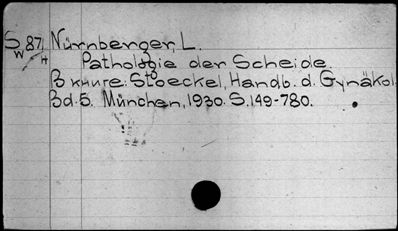 S 87/ Nürnberger, L.
W H Pathologie der Scheide.
В книге: Stoeckel, Handb. d. Gynäkol.
Bd. 5. München, 1930. S. 149-780.